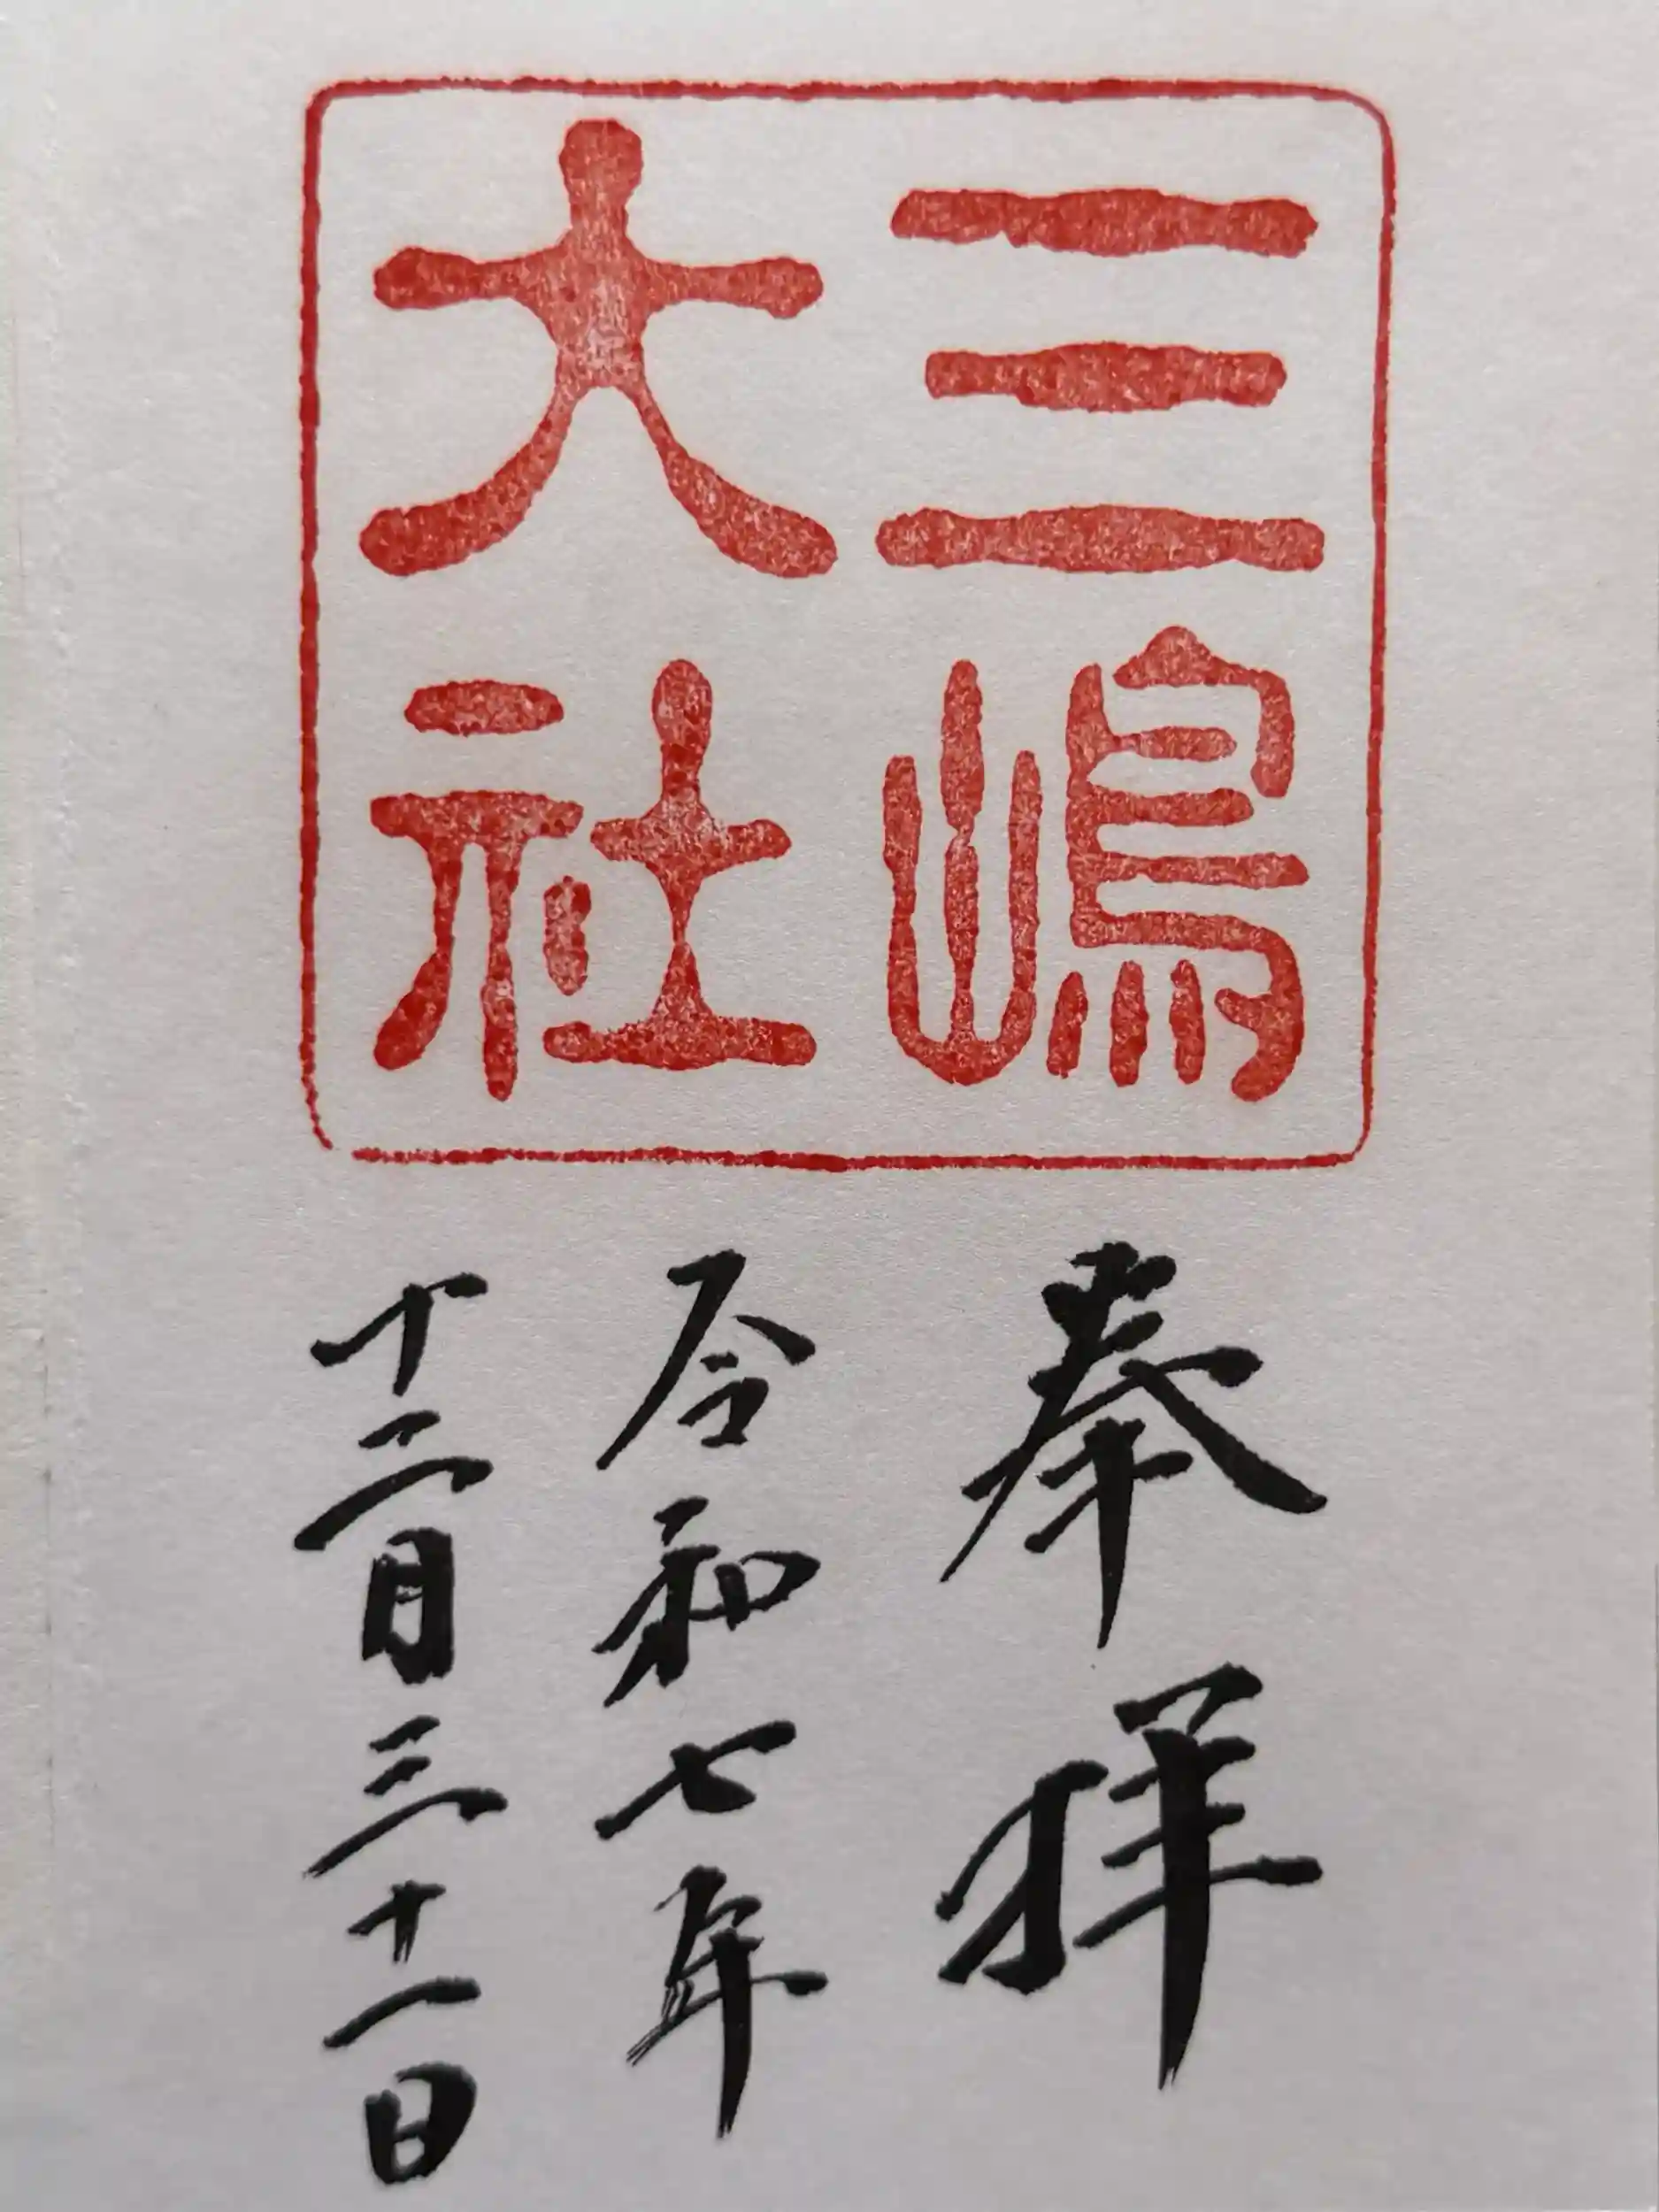 三嶋
大社
奉拝
令和七年
十二月三十一日